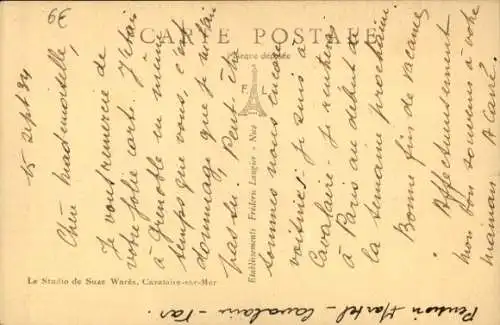 39
CARTE POSTALE
Marque déposée
F L
Etablissements Frédéric Laugier - Nice
Le Studio de Suze Warés, Cavalaire-sur-Mer
15 Sept 34
Chère Mademoiselle,
Je vous remercie de
votre jolie carte. J'étais
à Grenoble en même
temps que vous, c'est
dommage que je n'étais
pas su. Peut-être
sommes-nous encore
voisines. Je suis à
Cavalaire. Je rentrerai
à Paris au début de
la semaine prochaine
Bonne fin de vacances
Affectueusement
mon bon souvenir à votre
maman.
Pension Martel - Cavalaire - Var.